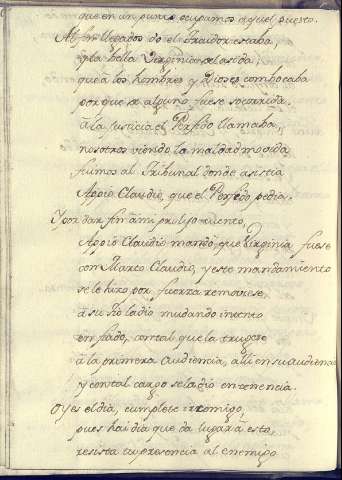 que en un punto ocupamos aquel puesto.
Allí llegados do el traidor estaba,
y la bella Virginia
que a los hombres y Dioses combocaba
por que de alguno fuese socorrida.
a la justicia el Perfido llamaba,
nosotros viendo la maldad movida
fuimos al Tribunal donde asistia
Appio Claudio, que el Perfido pedia.
Y por dar fin a mi prolijo cuento,
Appio Claudio mandó, que Virginia fuese
con Marco Claudio, y este mandamiento
se le hizo por fuerza removiese,
a su tio la dio mudando intento
en fiado, con tal que la trugese
a la primera audiencia, alli en su audiencia
y con tal cargo se la dio en tenencia.
Oy es el dia, cumplete ir comigo,
pues hai dia que da lugar a esto,
resista tu presencia al enemigo